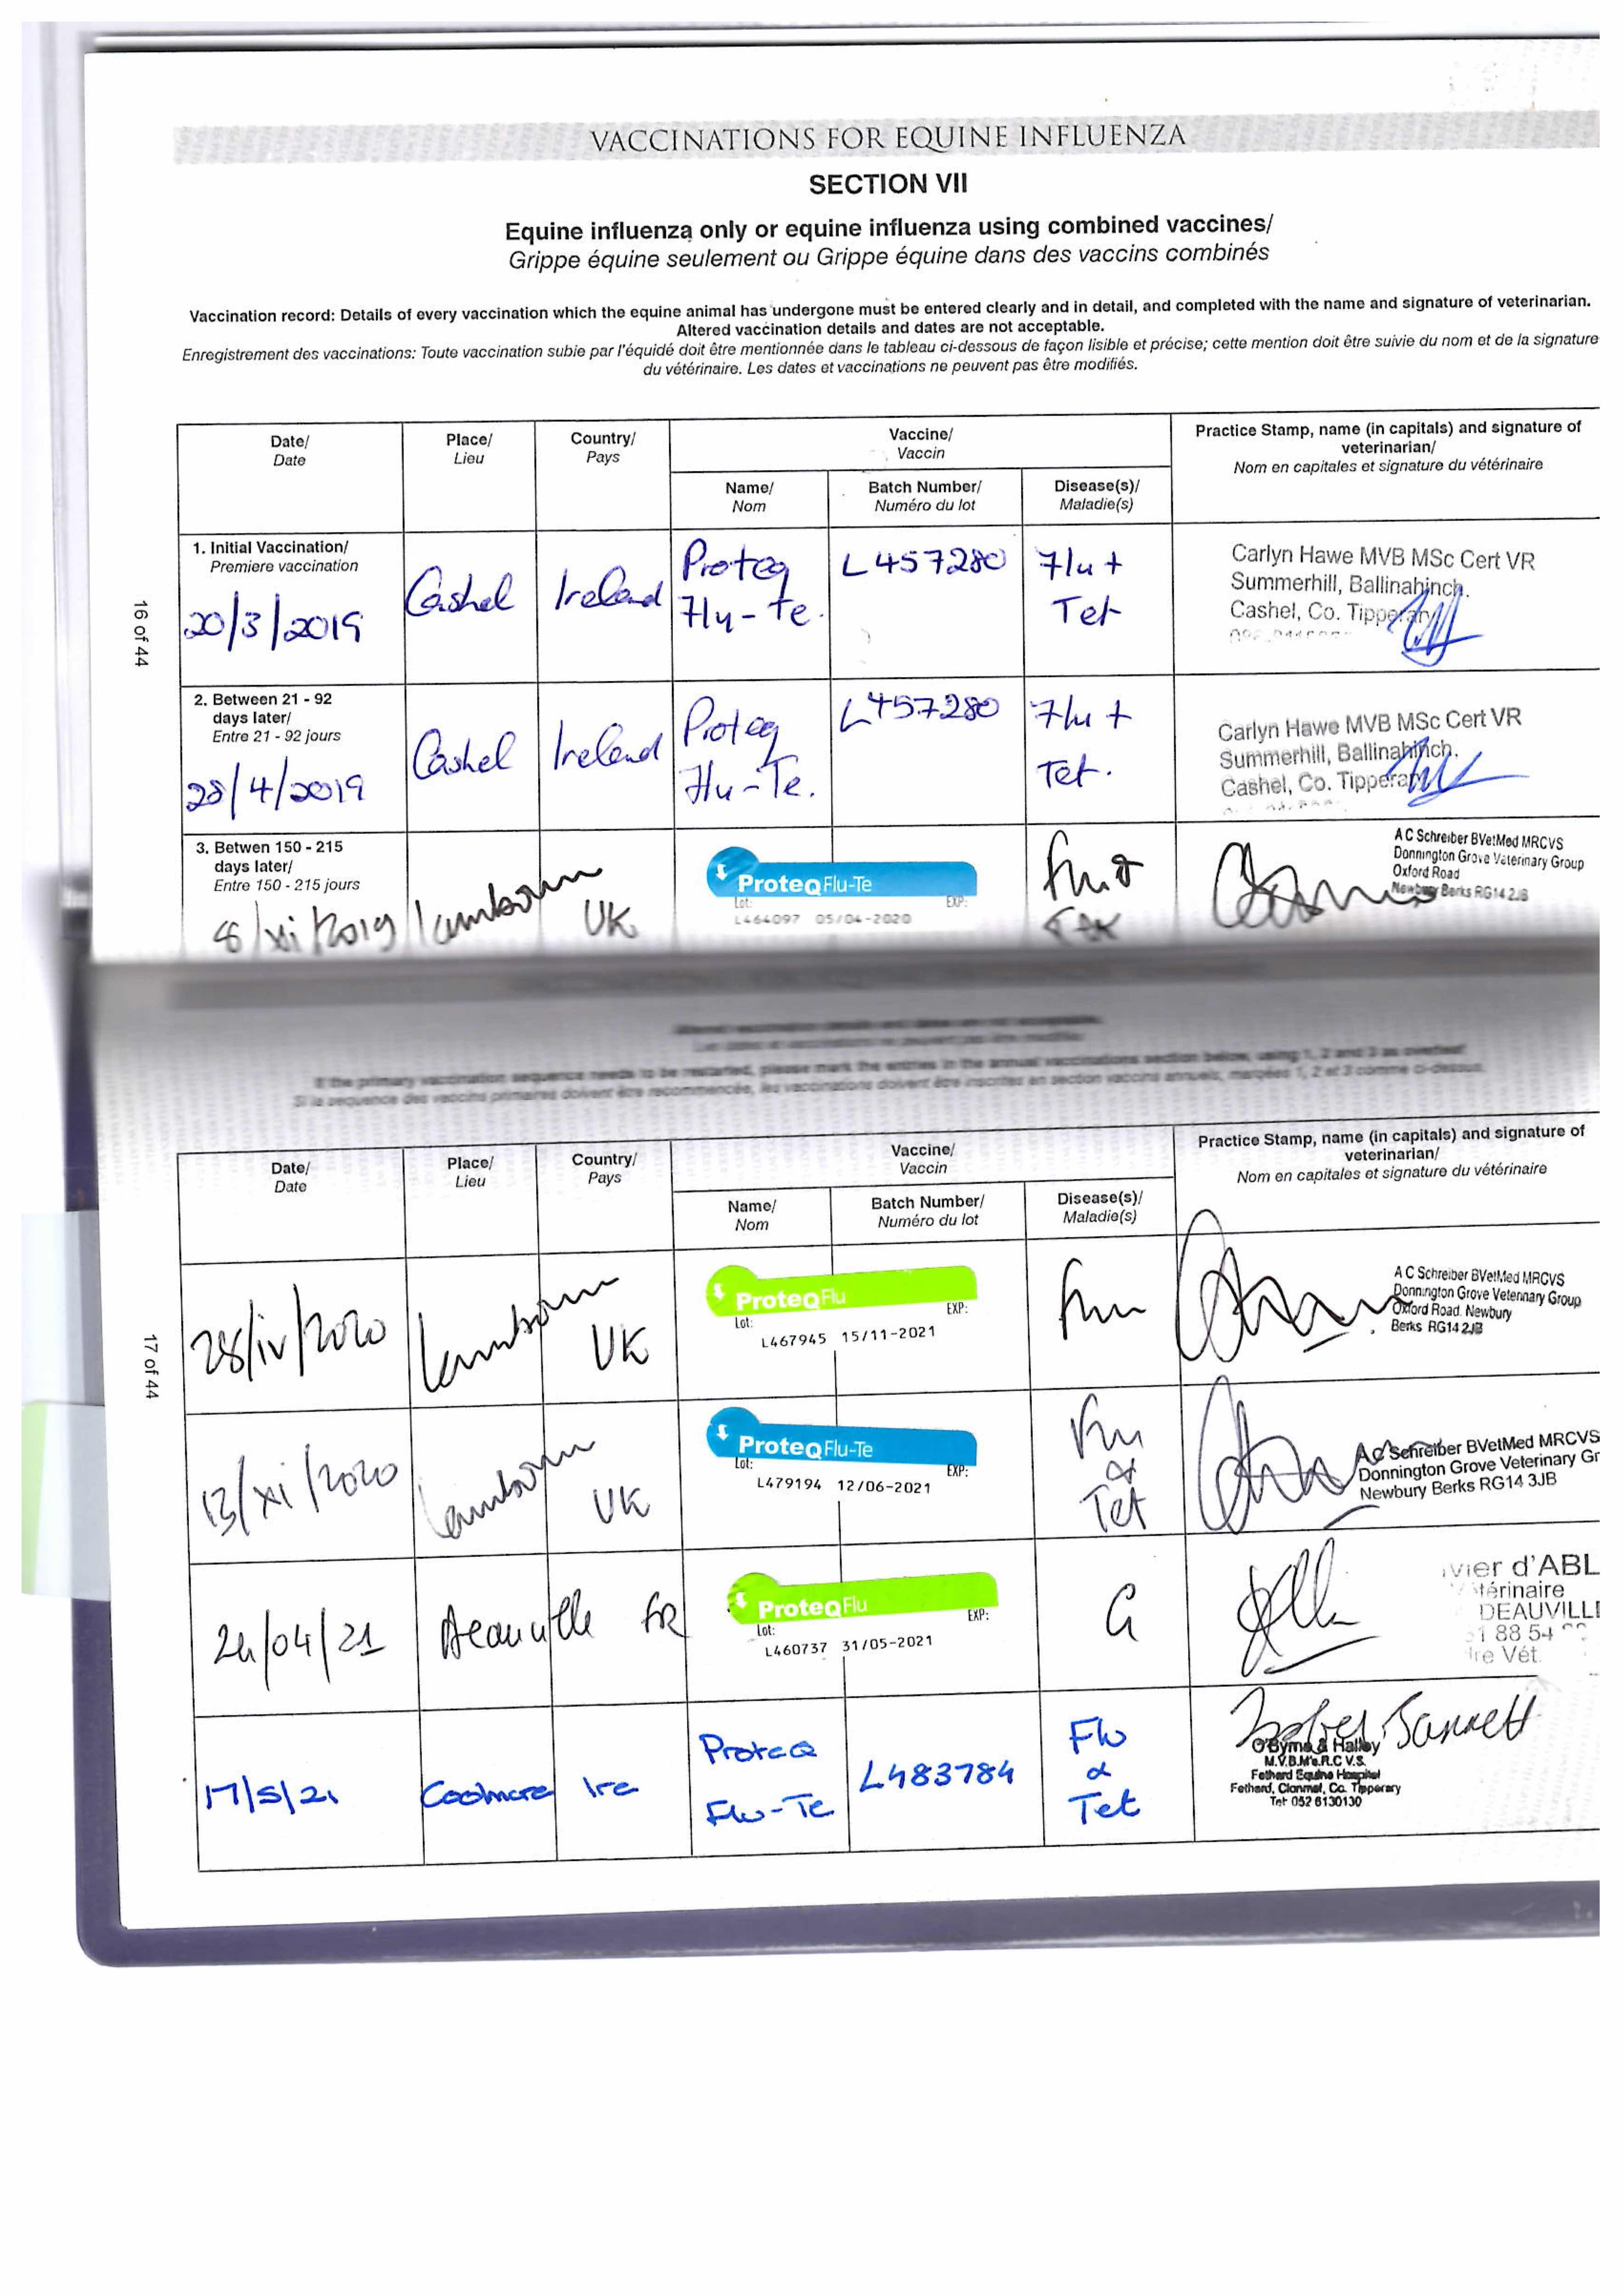 VACCINATIONS FOR EQUINE INFLUENZA
SECTION VII
Equine influenza only or equine influenza using combined vaccines/
Grippe équine seulement ou Grippe équine dans des vaccins combinés
Vaccination record: Details of every vaccination which the equine animal has undergone must be entered clearly and in detail, and completed with the name and signature of veterinarian.
Altered vaccination details and dates are not acceptable.
Enregistrement des vaccinations: Toute vaccination subie par l'équidé doit être mentionnée dans le tableau ci-dessous de façon lisible et précise; cette mention doit être suivie du nom et de la signature
du vétérinaire. Les dates et vaccinations ne peuvent pas être modifiés.
Date/
Date
Place/
Lieu
Country/
Pays
Vaccine/
Vaccin
Practice Stamp, name (in capitals) and signature of
veterinarian/
Nom en capitales et signature du vétérinaire
Name/
Nom
Batch Number/
Numéro du lot
Disease(s)/
Maladie(s)
16 of 44
1. Initial Vaccination/
Premiere vaccination
20/3/2019
Cashel
Ireland
Proteq
Flu-Te.
L457280
Flu +
Tet
Carlyn Hawe MVB MSc Cert VR
Summerhill, Ballinahinch.
Cashel, Co. Tipperary
2. Between 21 - 92
days later/
Entre 21 - 92 jours
28/4/2019
Cashel
Ireland
Proteq
Flu-Te.
L457280
Flu +
Tet.
Carlyn Hawe MVB MSc Cert VR
Summerhill, Ballinahinch.
Cashel, Co. Tipperary
3. Betwen 150 - 215
days later/
Entre 150 - 215 jours
8/xi/2019
Lambourn
UK
ProteqFlu-Te
Lot:
EXP:
L464097 05/04-2020
Flu &
Tet
A C Schreiber BVetMed MRCVS
Donnington Grove Veterinary Group
Oxford Road
Newbury Berks RG14 2JB
If the primary vaccination sequence needs to be restarted, please mark the entries in the annual vaccinations section below, using 1, 2 and 3 as overleaf
Si la sequence des vaccins primaires doivent être recommencée, les vaccinations doivent être inscrites en section vaccins annuels, marqées 1, 2 et 3 comme ci-dessus.
Date/
Date
Place/
Lieu
Country/
Pays
Vaccine/
Vaccin
Practice Stamp, name (in capitals) and signature of
veterinarian/
Nom en capitales et signature du vétérinaire
Name/
Nom
Batch Number/
Numéro du lot
Disease(s)/
Maladie(s)
17 of 44
28/iv/2020
Lambourn
UK
ProteqFlu
Lot:
EXP:
L467945 15/11-2021
Flu
A C Schreiber BVetMed MRCVS
Donnington Grove Veterinary Group
Oxford Road. Newbury
Berks RG14 2JB
13/xi/2020
Lambourn
UK
ProteqFlu-Te
Lot:
EXP:
L479194 12/06-2021
Flu
&
Tet
A C Schreiber BVetMed MRCVS
Donnington Grove Veterinary Gr
Newbury Berks RG14 3JB
24/04/21
Deauville
FR
ProteqFlu
Lot:
EXP:
L460737 31/05-2021
G
vier d'ABL
térinaire
DEAUVILLE
1 88 54
dre Vét.
17/5/21
Coolmore
Ire
Proteq
Flu-Te
L483784
Flu
&
Tet
O'Byrne & Halley
M.V.B.M's.R.C.V.S.
Fethard Equine Hospital
Fethard, Clonmel, Co. Tipperary
Tel: 052 6130130